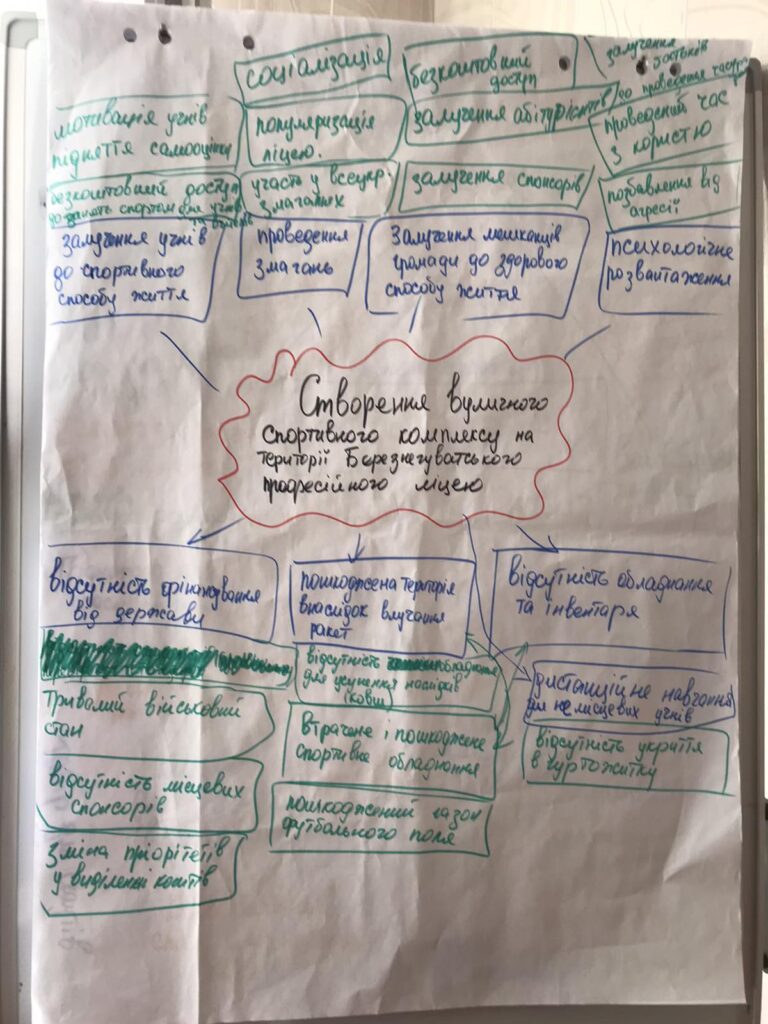 соціалізація
безкоштовний
доступ
залучення
до проведення часу
мотивація учнів
підняття самооцінки
популяризація
ліцею.
залучення абітурієнтів
проведений час
з користю
безкоштовний доступ
до занять спортом для учнів
участь у всеукр.
змаганнях
залучення спонсорів
позбавлення від
агресії
залучення учнів
до спортивного
способу життя
проведення
змагань
Залучення мешканців
громади до здорового
способу життя
психологічне
розвантаження
Створення вуличного
спортивного комплексу на
території Березнегуватського
професійного ліцею
відсутність фінансування
від держави
пошкоджена територія
внаслідок влучання
ракет
відсутність обладнання
та інвентаря
відсутність обладнання
для усунення наслідків
(ковш)
дистанційне навчання
для не місцевих учнів
Тривалий військовий
стан
Втрачене і пошкоджене
спортивне обладнання
відсутність укриття
в гуртожитку
відсутність місцевих
спонсорів
пошкоджений газон
футбольного поля
Зміна пріорітетів
у виділенні коштів